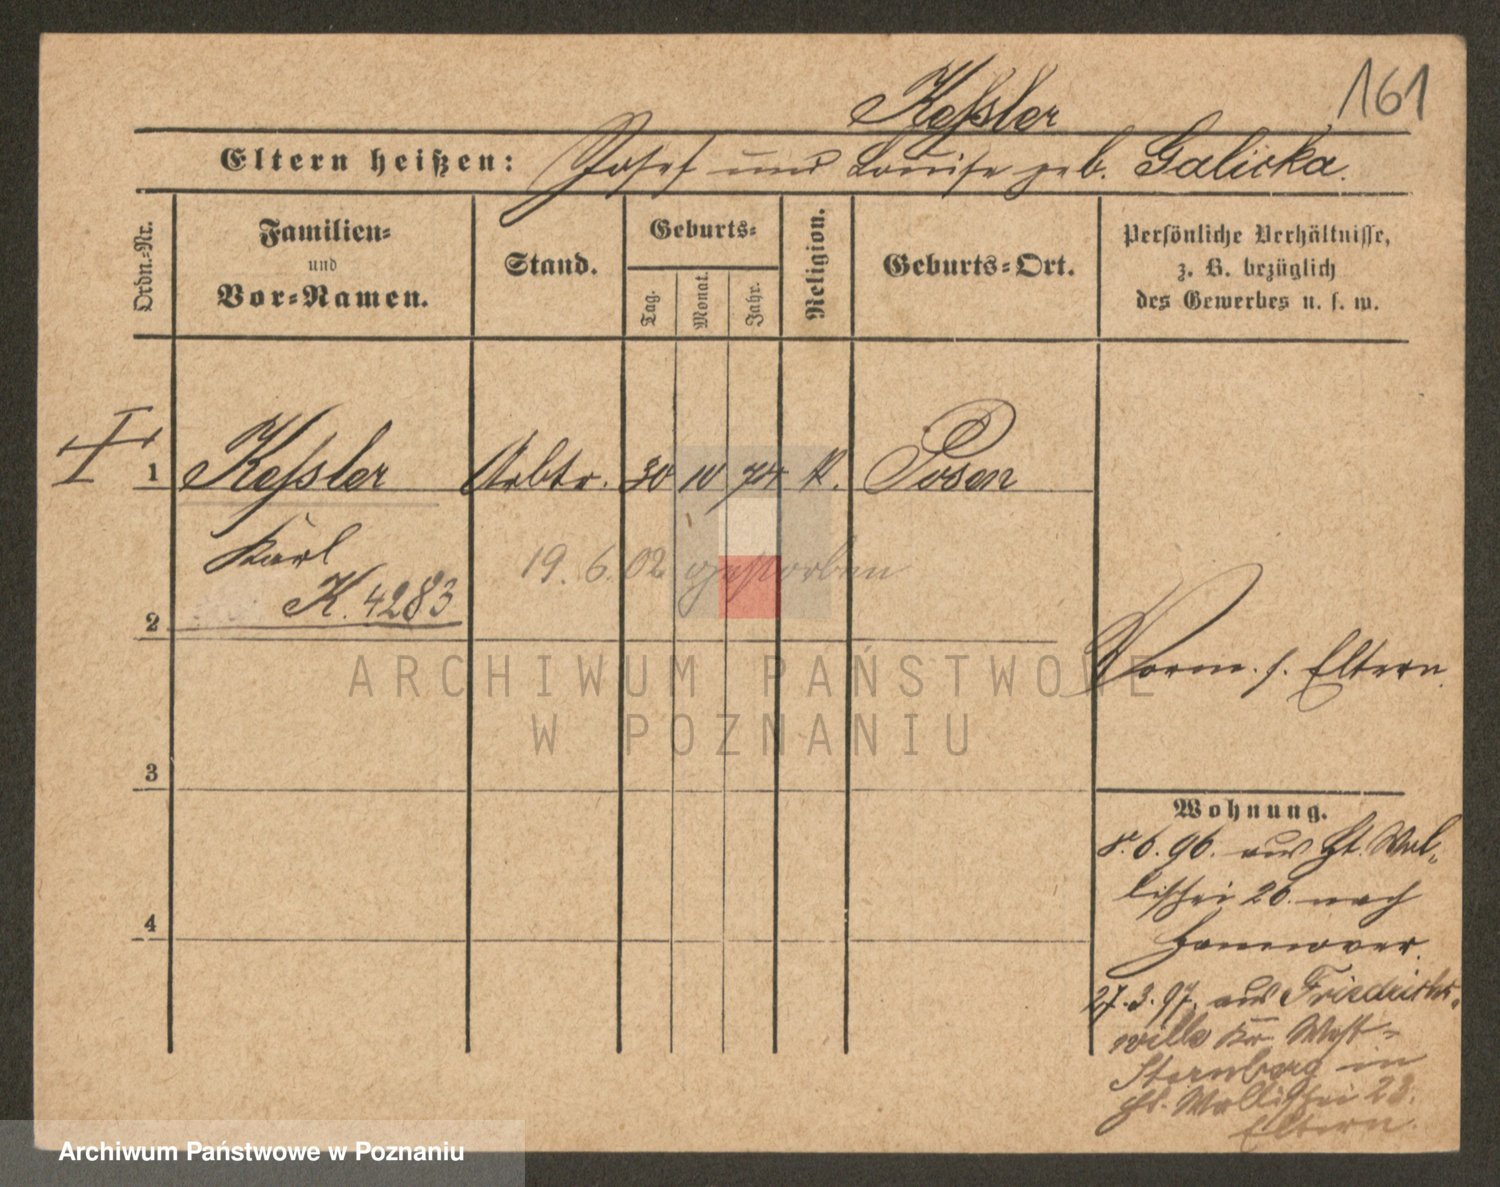 161
Keſsler
Eltern heißen: Josef und Louise geb. Galicka.
Ordn.-Nr.
Familien-
und
Vor-Namen.
Stand.
Geburts-
Tag.
Monat.
Jahr.
Religion.
Geburts-Ort.
Persönliche Verhältnisse,
z. B. bezüglich
des Gewerbes u. s. w.
1 Keſsler Arbtr. 30 10 74 K. Posen
Karl
19. 6. 02 gestorben
K. 4283
2
Vorm. s. Eltern.
3
Wohnung.
8. 6. 96. aus St. Wal-
lischei 26. nach
Hannover.
4
27. 3. 97. aus Friedrichs-
wille Kr. West-
Sternberg in
St. Wallischei 23.
Eltern.
ARCHIWUM PAŃSTWOWE
W POZNANIU
Archiwum Państwowe w Poznaniu